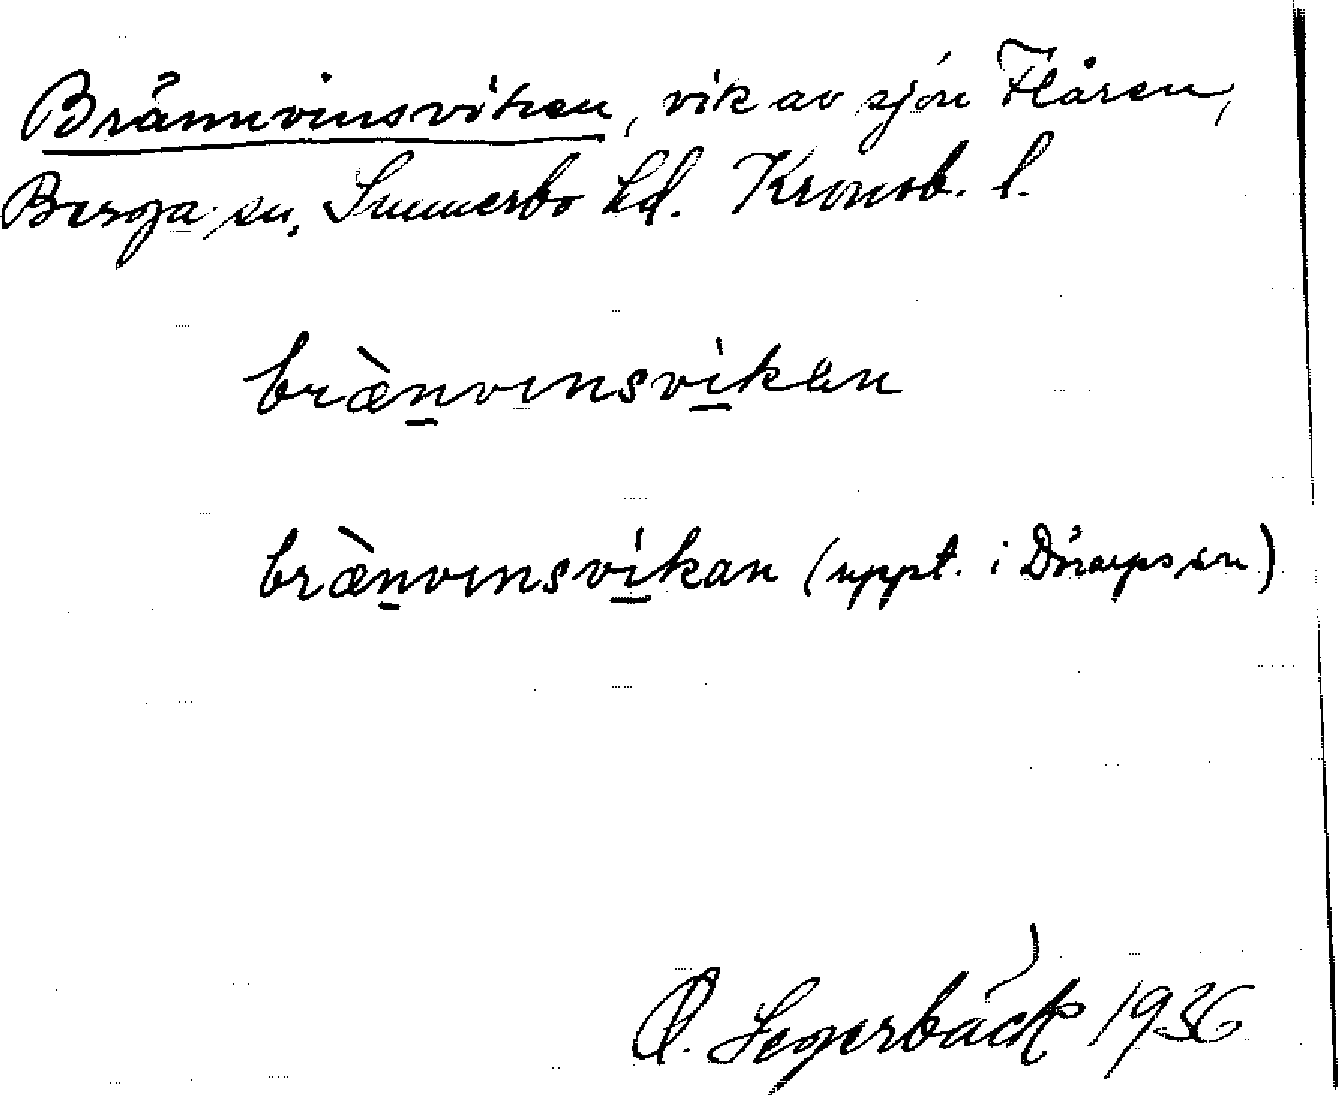 Brännvinsviken, vik av sjön Flåren,
Berga sn. Sunnerbo hd. Kronob. l.
bræ̀n̲vınsvi̲kən
bræ̀n̲vınsvi̲kan (uppt. i Dörarps sn)
O. Segerbäck 1936